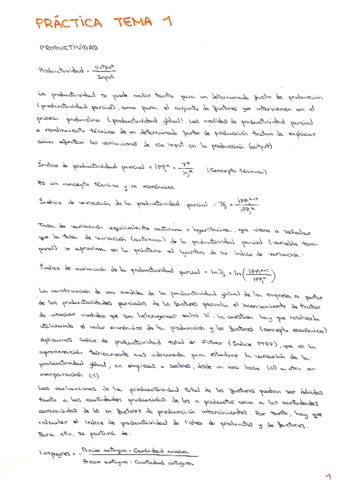 PRÁCTICA TEMA 1
PRODUCTIVIDAD
Productividad = output / Input
La productividad se puede medir tanto para un determinado factor de producción
(productividad parcial), como para el conjunto de factores que intervienen en el
proceso productivo (productividad global). Las medidas de productividad parcial
o rendimiento técnico de un determinado factor de producción tratan de explicar
cómo afectan las variaciones de ese input en la producción (output)
Índice de productividad parcial = (Concepto técnico)
Es un concepto técnico y no económico
Índice de variación de la productividad parcial =
Tasa de variación equivalente continua o logarítmica: que viene a señalar
que la tasa de variación (continua) de la productividad parcial (variable tem-
poral) se aproxima en la práctica al logaritmo de su índice de variación:
Índice de variación de la productividad parcial = ln
La construcción de una medida de la productividad global de la empresa a partir
de las productividades parciales de los factores presenta el inconveniente de tratar
de asociar medidas que son heterogéneas entre sí. La cuestión hay que resolverla
utilizando el valor económico de la producción y los factores (concepto económico)
Aplicamos índice de productividad total de Fisher (Índice PTFF), que es la
aproximación teóricamente más adecuada para estudiar la variación de la
productividad global, en empresas o sectores, desde un año base (0) a otro en
comparación (1)
Las variaciones de la productividad total de los factores pueden ser debidas
tanto a las cantidades producidas de los n productos como a las cantidades
consumidas de los m factores de producción intervinientes. Por tanto, hay que
calcular el índice de productividad de Fisher de productos y de factores.
Para ello, se partirá de:
Laspeyres = Precio antiguo · Cantidad nueva / Precio antiguo · Cantidad antigua
1